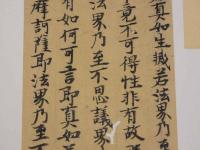 真如生滅若法界乃至
竟不可得性非有故
有如何可言即真如
法界乃至不思議界
摩訶薩即法界乃至不